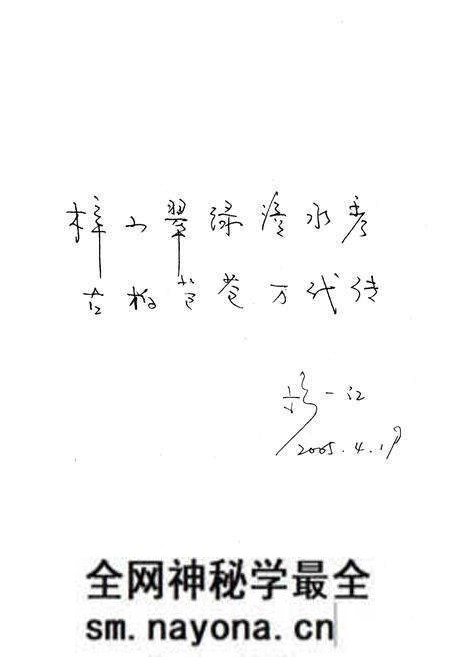 梓山翠绿潼水秀
古柏苍苍万代传
一江
2005.4.19
全网神秘学最全
sm.nayona.cn